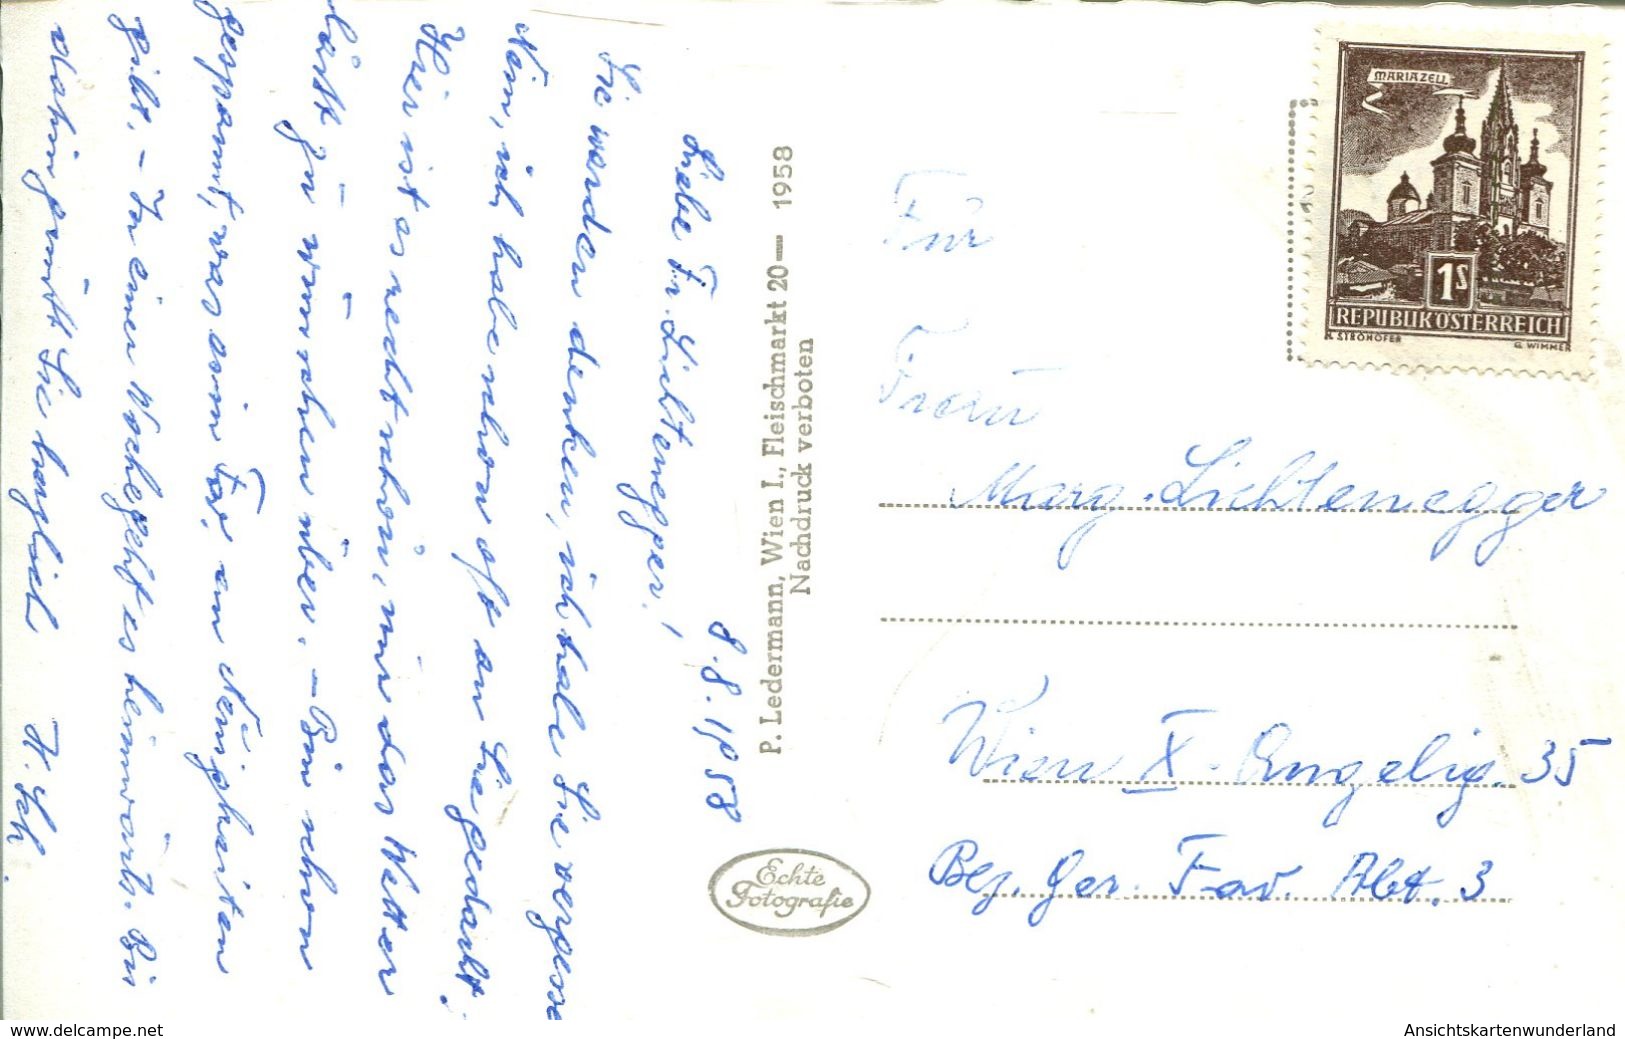 8.8.1958
Liebe Fr. Lichtenegger!
Sie werden denken, ich habe Sie vergessen
Nein, ich habe schon oft an Sie gedacht.
Hier ist es recht schön, nur das Wetter
läßt zu wünschen über. - Bin schon
gespannt, was am Fav. an Neuigkeiten
gibt. - In einer Woche geht es heimwärts. Bis
dahin grüßt Sie herzlich H. Sch.
P. Ledermann, Wien I., Fleischmarkt 20— 1958
Nachdruck verboten
Echte
Fotografie
MARIAZELL
1S
REPUBLIK ÖSTERREICH
R. STROHOFER G. WIMMER
Für
Frau
Marg. Lichtenegger
Wien X. Angelig. 35
Bez. Ger. Fav. Abt. 3
www.delcampe.net
Ansichtskartenwunderland